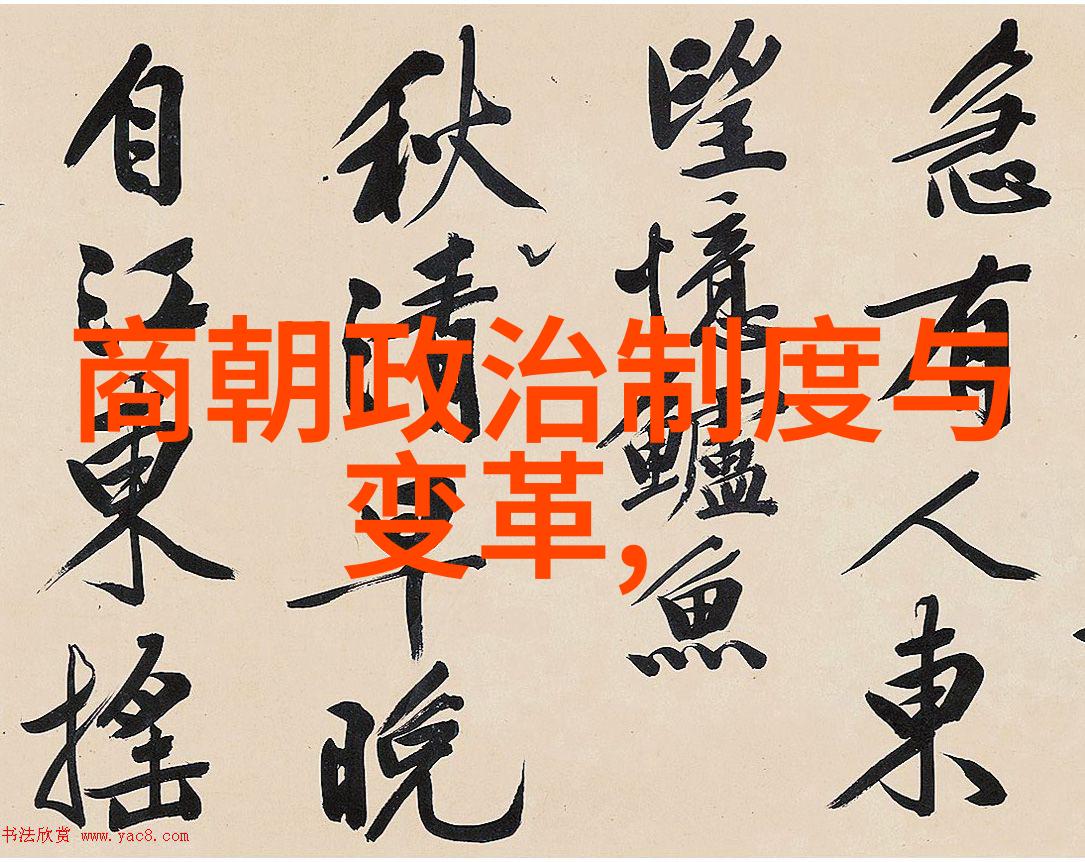 急有人東
望憶鱸魚
秋清早晚
自江東搖
商朝政治制度与
变革,
书法欣赏 www.yac8.com